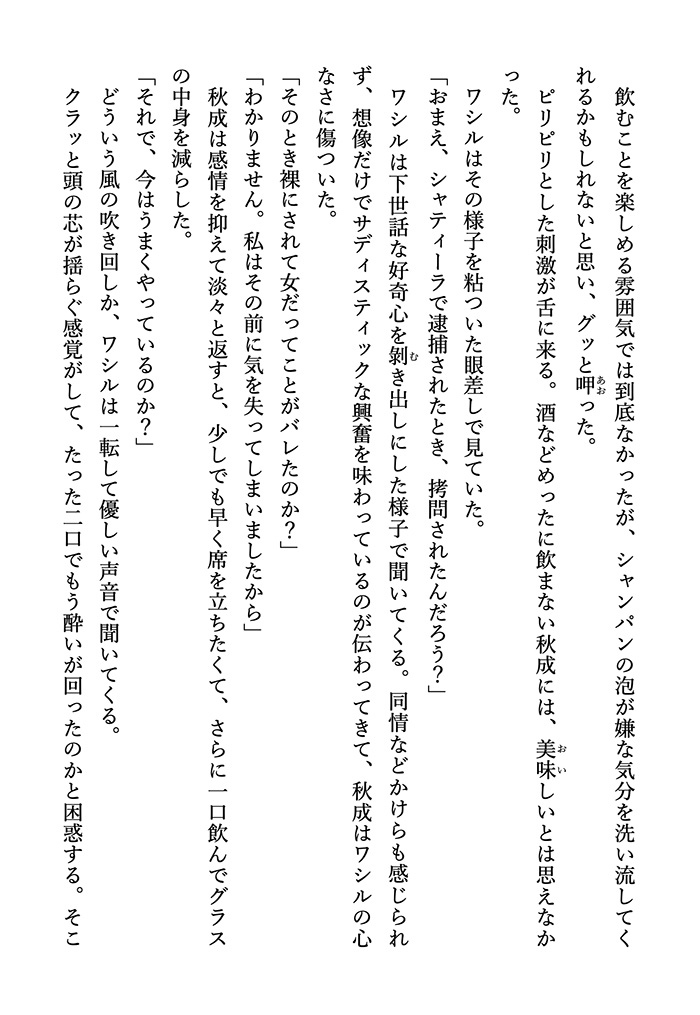 飲むことを楽しめる雰囲気では到底なかったが、シャンパンの泡が嫌な気分を洗い流してく
れるかもしれないと思い、グッと呷あおった。
ピリピリとした刺激が舌に来る。酒などめったに飲まない秋成には、美味おいしいとは思えなか
った。
ワシルはその様子を粘ついた眼差しで見ていた。
「おまえ、シャティーラで逮捕されたとき、拷問されたんだろう？」
ワシルは下世話な好奇心を剝むき出しにした様子で聞いてくる。同情などかけらも感じられ
ず、想像だけでサディスティックな興奮を味わっているのが伝わってきて、秋成はワシルの心
なさに傷ついた。
「そのとき裸にされて女だってことがバレたのか？」
「わかりません。私はその前に気を失ってしまいましたから」
秋成は感情を抑えて淡々と返すと、少しでも早く席を立ちたくて、さらに一口飲んでグラス
の中身を減らした。
「それで、今はうまくやっているのか？」
どういう風の吹き回しか、ワシルは一転して優しい声音で聞いてくる。
クラッと頭の芯が揺らぐ感覚がして、たった二口でもう酔いが回ったのかと困惑する。そこ